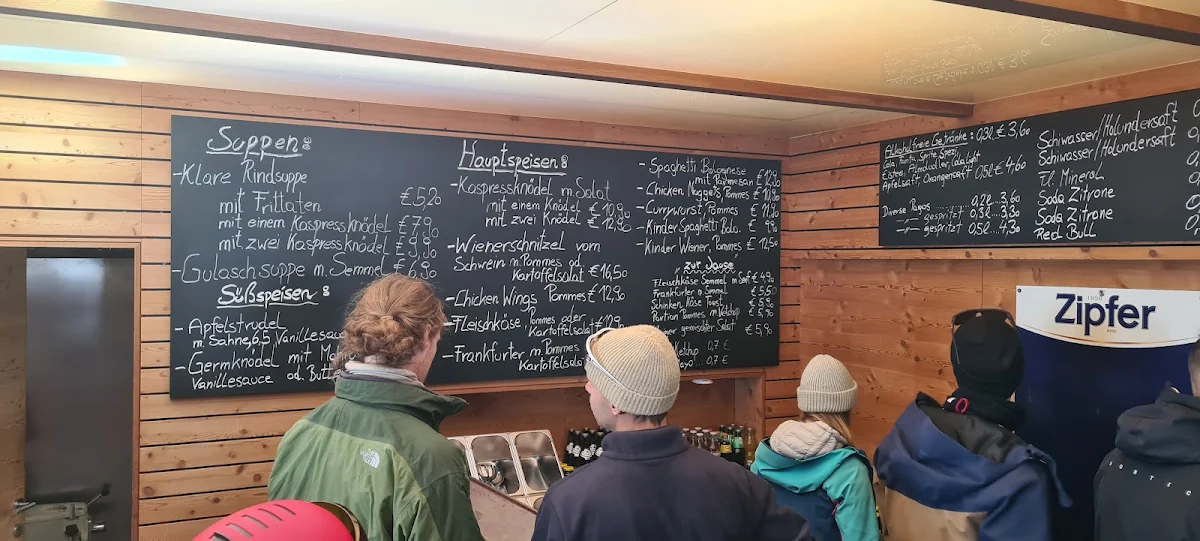 Suppen:
-Klare Rindsuppe
mit Frittaten €5,20
mit einem Kaspressknödel €7,90
mit zwei Kaspressknödel €9,90
-Gulaschsuppe m. Semmel €6,90
Süßspeisen:
-Apfelstrudel
m. Sahne, 6,5 Vanillesauce
-Germknödel mit
Vanillesauce od.
Hauptspeisen:
-Kaspressknödel m. Salat
mit einem Knödel € 10,90
mit zwei Knödel € 12,90
-Wienerschnitzel vom
Schwein m. Pommes od.
Kartoffelsalat €16,50
-Chicken Wings, Pommes € 12,90
-Fleischkäse, Pommes oder
Kartoffelsalat
-Frankfurter m. Pommes
Kartoffelsalat
-Spaghetti Bolognese
mit Parmesan
-Chicken Nuggets, Pommes € 10,90
-Currywurst, Pommes € 11,90
-Kinder Spaghetti Bolo. € 9,90
-Kinder Wiener, Pommes € 12,50
zur Jause
Fleischkäse Semmel m. Senf € 4,90
Frankfurter m. Semmel € 5,50
Schinken, Käse Toast € 5,90
Portion Pommes m. Ketchup € 5,90
gemischter Salat € 5,90
Ketchup 0,7 €
0,7 €
Alkoholfreie Getränke: 0,3l € 3,60
Cola, Fanta, Sprite, Spezi,
Eistee, Almdudler, Cola light
Apfelsaft, Orangensaft 0,5l € 4,60
Diverse 0,2l 3,60
gespritzt 0,3l 3,30
gespritzt 0,5l 4,30
Schiwasser/Holundersaft
Schiwasser/Holundersaft
Fl. Mineral
Soda Zitrone
Soda Zitrone
Red Bull
Zipfer